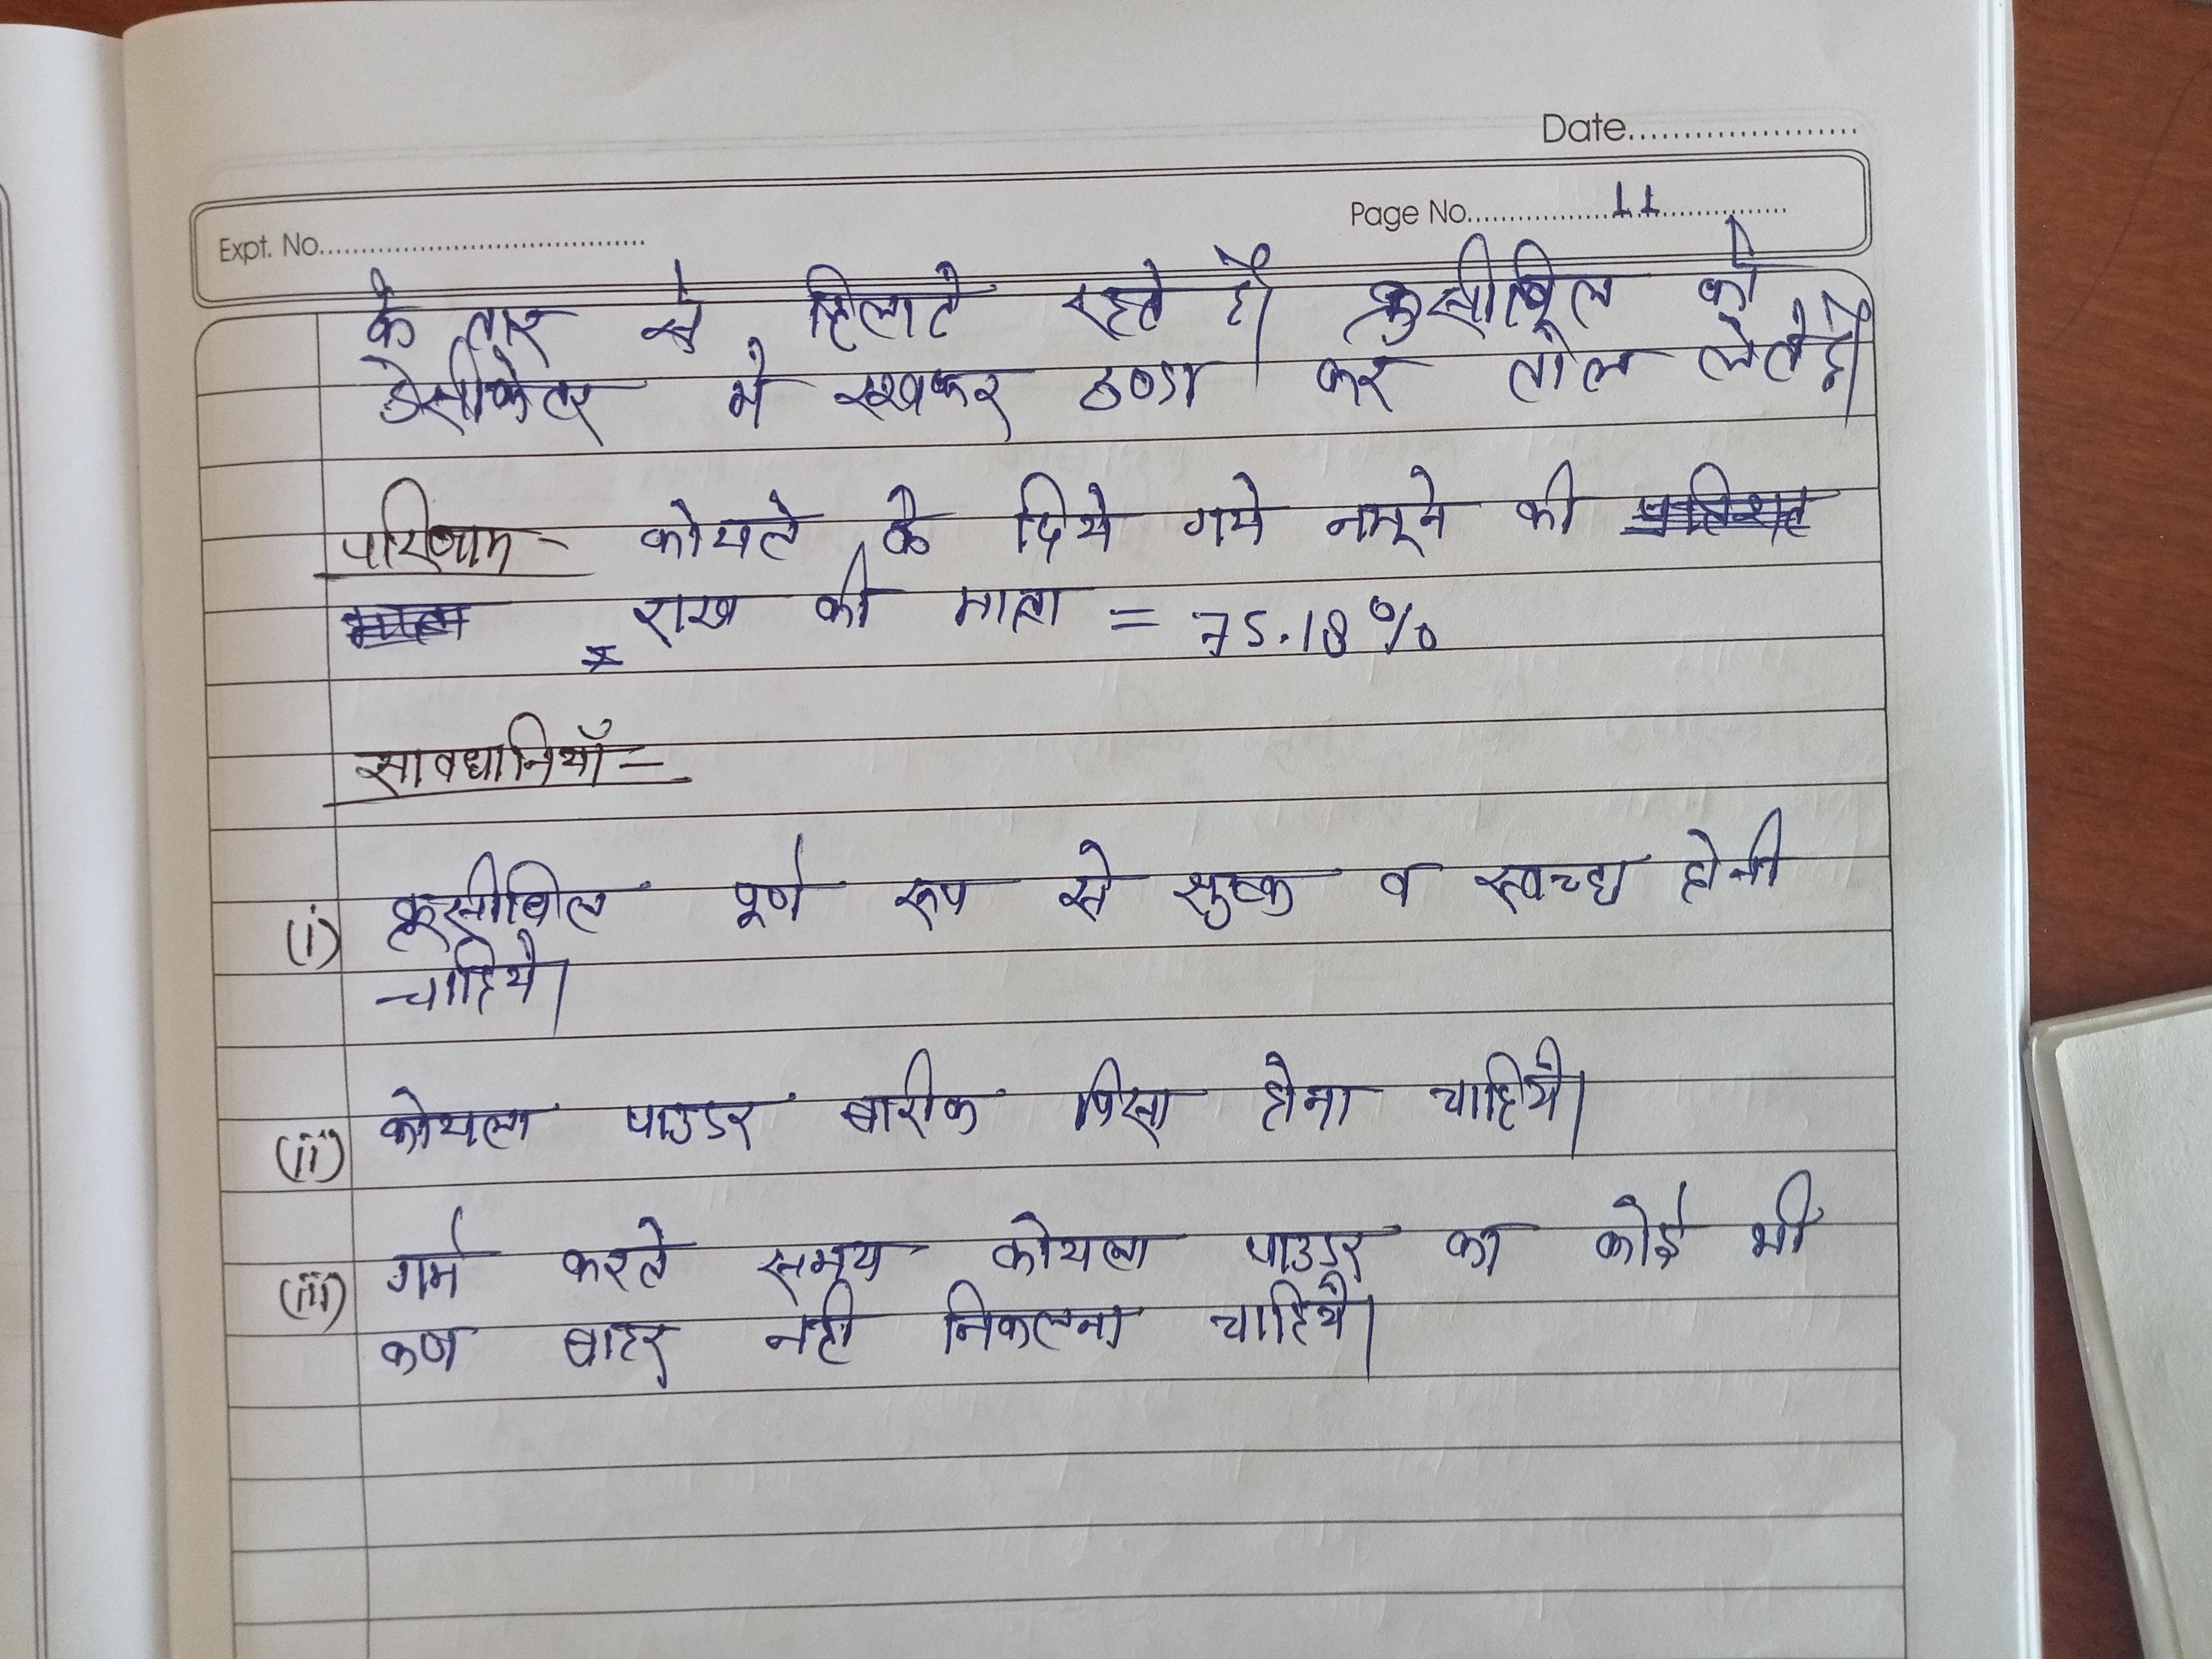 Date
Page No. 11
Expt. No.
के तार से हिलाते रहते है। क्रुसीबिल को
डेसीकेटर मे रखकर ठण्डा कर तोल लेते है।
परिणाम - कोयले के दिये गये नमूने की
राख की मात्रा = 75.18%
सावधानियाँ =
(i) क्रुसीबिल पूर्ण रूप से शुष्क व स्वच्छ होनी
चाहिये।
(ii) कोयला पाउडर बारीक पिसा होना चाहिये।
(iii) गर्म करते समय कोयला पाउडर का कोई भी
कण बाहर नही निकलना चाहिये।